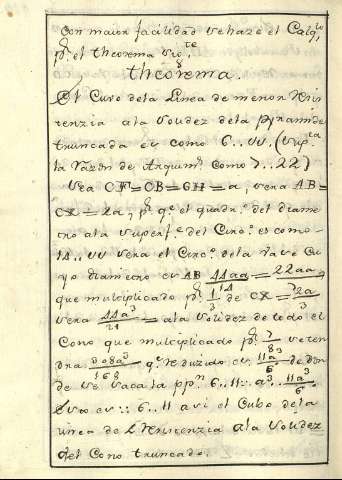 Con maior facilidad se haze el Calqlo
pr el theorema sigte
theorema.
El Cuvo dela Linea de menor Resis
tenzia ala solidez dela pyramide
truncada es como 6..11. (supta
la razon de Arquimds como 7..22)
Sea CF=CB=GH=a, sera AB=
CX=2a, pr qe el quado del diame
tro ala superfe del Circo es como
14..11 sera el Circo dela vase Cu
yo diametro es AB 44aa/14=22aa/7
que multiplicado pr 1/3 de CX=2a/3
sera 44a3/21 = ala solidez de todo el
Cono que multiplicado pr 7/8 se ten
dra 308a3/168 qe reduzido es 11a3/6 de don
de se saca la ppn 6..11: a3..11a3/6
Esto es :: 6..11 asi el Cubo dela
linea de L Resistenzia ala Solidez
del Cono truncado.